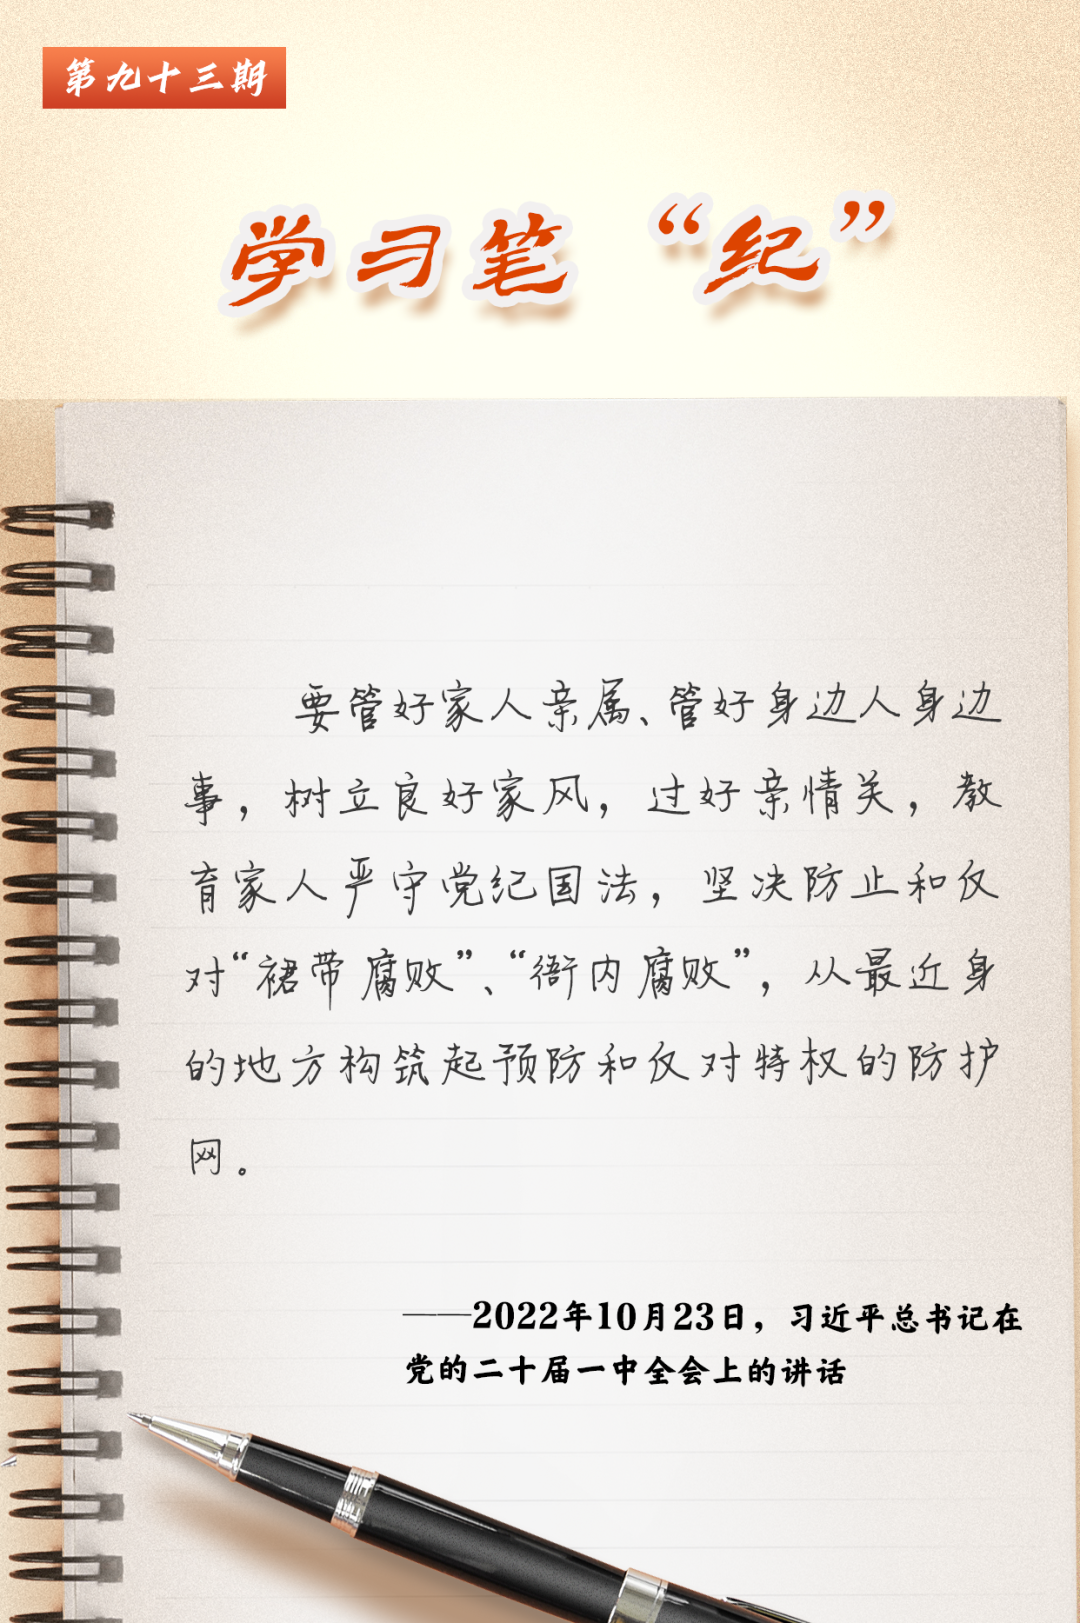 第九十三期
学习笔“纪”
要管好家人亲属、管好身边人身边
事，树立良好家风，过好亲情关，教
育家人严守党纪国法，坚决防止和反
对“裙带腐败”、“衙内腐败”，从最近身
的地方构筑起预防和反对特权的防护
网。
——2022年10月23日，习近平总书记在
党的二十届一中全会上的讲话